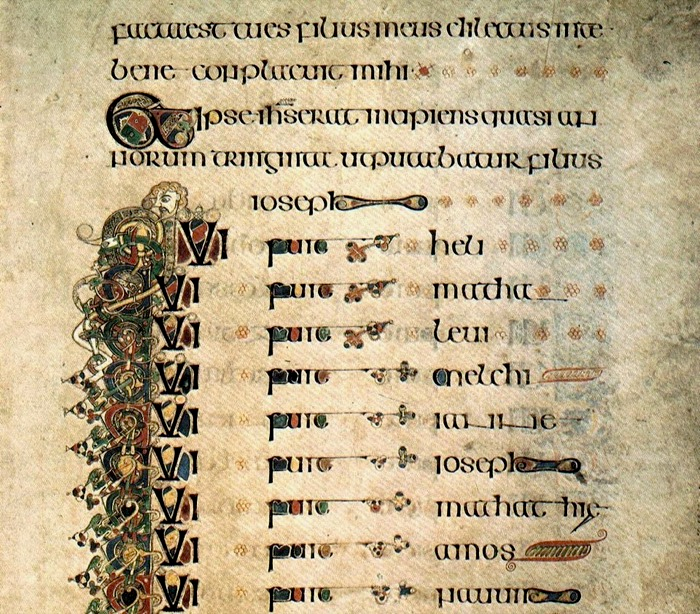 facta est tu es filius meus dilectus in te
bene conplacuit mihi
Et ipse ihs erat incipiens quasi an
norum triginta ut putabatur filius
ioseph
QUI fuit heli
QUI fuit matha
QUI fuit leui
QUI fuit melchi
QUI fuit
QUI fuit ioseph
QUI fuit mathat hie
QUI fuit amos
QUI fuit nauum